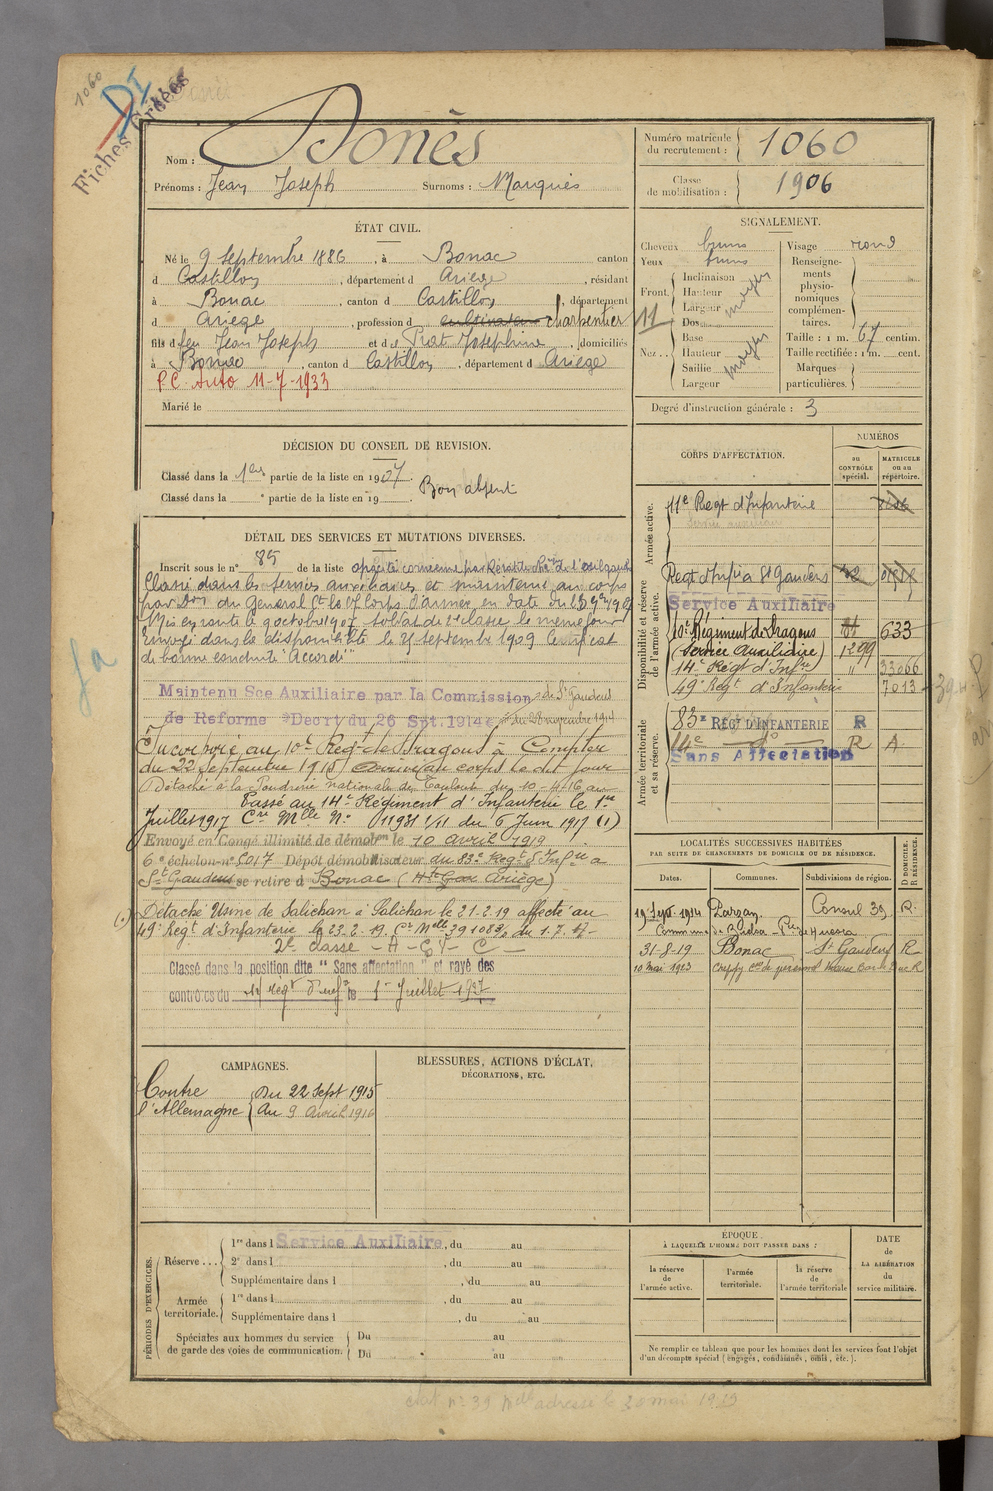 1060
DI
Fiches Créées
Nom : Donès
Prénoms : Jean Joseph Surnoms : Marquès
Numéro matricule du recrutement : 1060
Classe de mobilisation : 1906
ÉTAT CIVIL.
Né le 9 Septembre 1886, à Bonac canton
d Castillon, département d Ariege, résidant
à Bonac, canton d Castillon, département
d Ariege, profession d cultivateur charpentier
fils d feu Jean Joseph et de Piat Josephine, domiciliés
à Bonac, canton d Castillon, département d Ariege
P.C. Auto 11-7-1933
Marié le
SIGNALEMENT.
Cheveux bruns
Yeux bruns
Front. Inclinaison
Hauteur moyen
Largeur
Nez. Dos
Base
Hauteur moyen
Saillie
Largeur
11
Visage rond
Renseignements physionomiques complémentaires.
Taille : 1 m. 67 centim.
Taille rectifiée : 1 m. cent.
Marques particulières.
Degré d'instruction générale : 3
DÉCISION DU CONSEIL DE REVISION.
Classé dans la 1ere partie de la liste en 1907.
Classé dans la e partie de la liste en 19
Bon absent
DÉTAIL DES SERVICES ET MUTATIONS DIVERSES.
Inscrit sous le n° 85 de la liste
Classé dans les services auxiliaires et maintenu au corps
par don du General Ct le 17e Corps d'armée en date du
Mis en route le 9 octobre 1907 soldat de 2e classe le meme jour
Envoyé dans la disponibilité le 25 septembre 1909 Certificat
de bonne conduite "Accordé"
Maintenu Sce Auxiliaire par la Commission de St Gaudens
de Reforme Decrt du 26 Spt. 1914 du 28 novembre 1914
Incorporé au 10e Regt de Dragons à Compter
du 22 Septembre 1915 Arrivé au corps le dit jour
Détaché à la Poudrerie nationale de Toulouse du 10-4-16 au
Passé au 14e Régiment d'Infanterie le 1er
Juillet 1917 Cre Mlle N° 11981 1/11 du 6 Juin 1917 (1)
Envoyé en Congé illimité de démobon le 10 avril 1919
6e échelon-n° 5017 Dépôt démobilisateur du 83e Regt d'Infie a
St Gaudens se retire à Bonac (Hte Gar Ariège)
(1) Détaché Usine de Salichan à Salichan le 21.2.19 affecté au
49e Regt d'Infanterie le 23.2.19. Ce Melle 39108 3/8 du 1.7.17
2e classe - A - C V - C
Classé dans la position dite "Sans affectation" et rayé des
contrôles du 14 regt d'infie le 1er Juillet 1927
CORPS D'AFFECTATION.
NUMÉROS
au CONTRÔLE spécial.
MATRICULE ou au répertoire.
Armée active.
11e Regt d'Infanterie
Service auxiliaire
Disponibilité et réserve de l'armée active.
Regt d'Infie à St Gaudens
Service Auxiliaire
10e Régiment de Dragons 633
(Service Auxiliaire) 1299
14e Regt d'Infie " 33066
49e Regt d'Infanterie 7013
Armée territoriale et sa réserve.
83e RÉGt D'INFANTERIE R
14e do R A
Sans Affectation
LOCALITÉS SUCCESSIVES HABITÉES
PAR SUITE DE CHANGEMENTS DE DOMICILE OU DE RÉSIDENCE.
Dates. Communes. Subdivisions de région. D DOMICILE. R RÉSIDENCE.
19 Sept 1914 Zarzan Consul 39 R.
Commune de Bielsa - Pce de Huesca
31-8-19 Bonac St Gaudens R
10 mai 1923 R
CAMPAGNES.
Contre l'Allemagne
Du 22 Sept 1915
Au 9 Avril 1919
BLESSURES, ACTIONS D'ÉCLAT,
DÉCORATIONS, ETC.
PÉRIODES D'EXERCICES.
Réserve... 1re dans l Service Auxiliaire, du au
2e dans l , du au
Supplémentaire dans l , du au
Armée territoriale. 1re dans l , du au
Supplémentaire dans l , du au
Spéciales aux hommes du service de garde des voies de communication. Du au
Du au
ÉPOQUE
À LAQUELLE L'HOMME DOIT PASSER DANS :
la réserve de l'armée active.
l'armée territoriale.
la réserve de l'armée territoriale
DATE de LA LIBÉRATION du service militaire.
Ne remplir ce tableau que pour les hommes dont les services font l'objet
d'un décompte spécial (engagés, condamnés, omis, etc.).